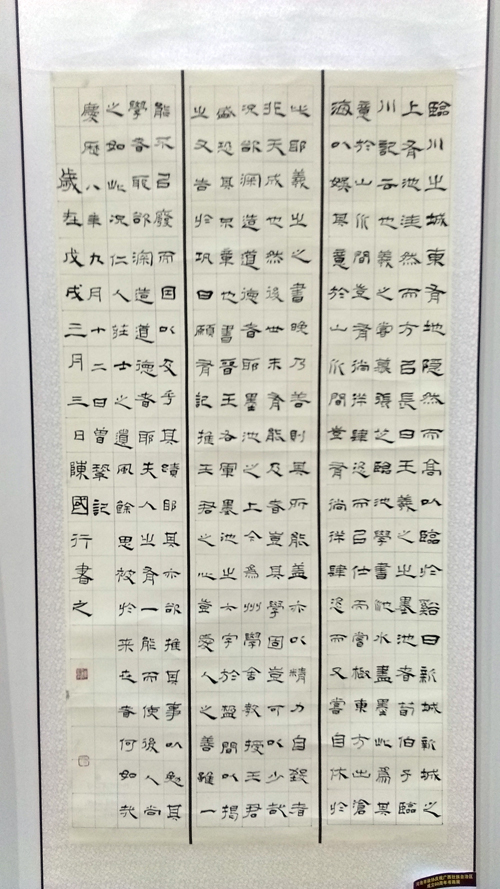 臨川之城東有地隱然而高以臨於谿曰新城新城之
上有池洼然而方以長曰王羲之之墨池者荀伯子臨
川記云也羲之嘗慕張芝臨池學書池水盡墨此為其
意於山水間豈有徜徉肆恣而已仕而嘗極東方出滄
海以娛其意於山水間豈有徜徉肆恣而又嘗自休於
此耶羲之之書晚乃善則其所能蓋亦以精力自致者
非天成也然後世未有能及者豈其學固豈可以少哉
況欲深造道德者耶墨池之上今為州學舍教授王君
盛恐其不章也書晉王右軍墨池之六字於楹間以揭
之又告於鞏曰願有記推王君之心豈愛人之善雖一
能不以廢而因以及乎其蹟耶其亦欲推其事以勉其
學者耶欲深造道德者耶夫人之有一能而使後人尚
之如此況仁人莊士之遺風餘思被於來世者何如哉
慶歷八年九月十二日曾鞏記
歲在戊戌三月三日陳國行書之